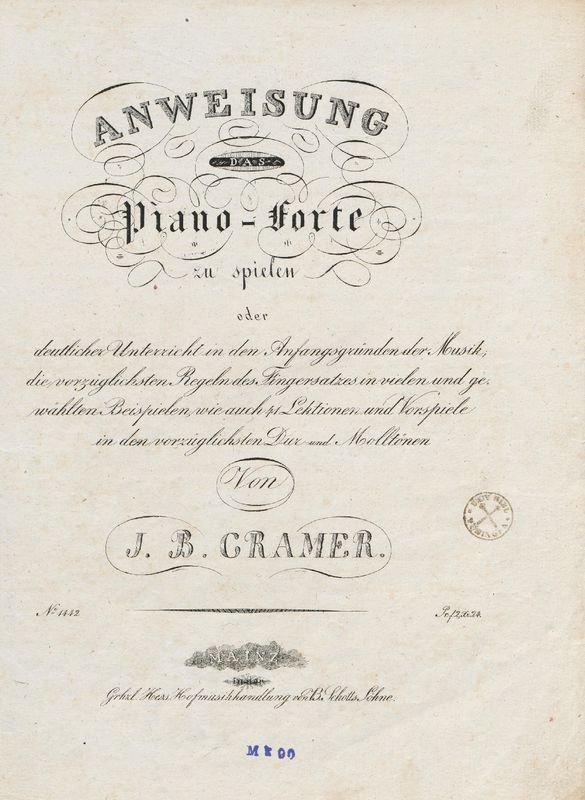 ANWEISUNG
DAS
Piano-Forte
zu spielen
oder
deutlicher Unterricht in den Anfangsgründen der Musik,
die vorzüglichsten Regeln des Fingersatzes in vielen und ge-
wählten Beispielen, wie auch 41 Lektionen und Vorspiele
in den vorzüglichsten Dur und Molltönen
Von
J. B. CRAMER.
No. 1442
Pr. f 2, Xr 24.
MAINZ
in der
Grhzl. Hess. Hofmusikhandlung von B. Schotts Söhne.